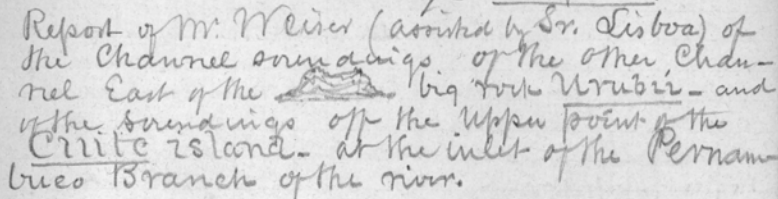 Report of Mr. Weiser (assisted by Sr. Lisboa) of
the Channel soundings of the other Chan-
nel East of the big rock Urubú - and
of the Soundings off the Upper point of the
island - at the inlet of the Pernam-
buco Branch of the river.